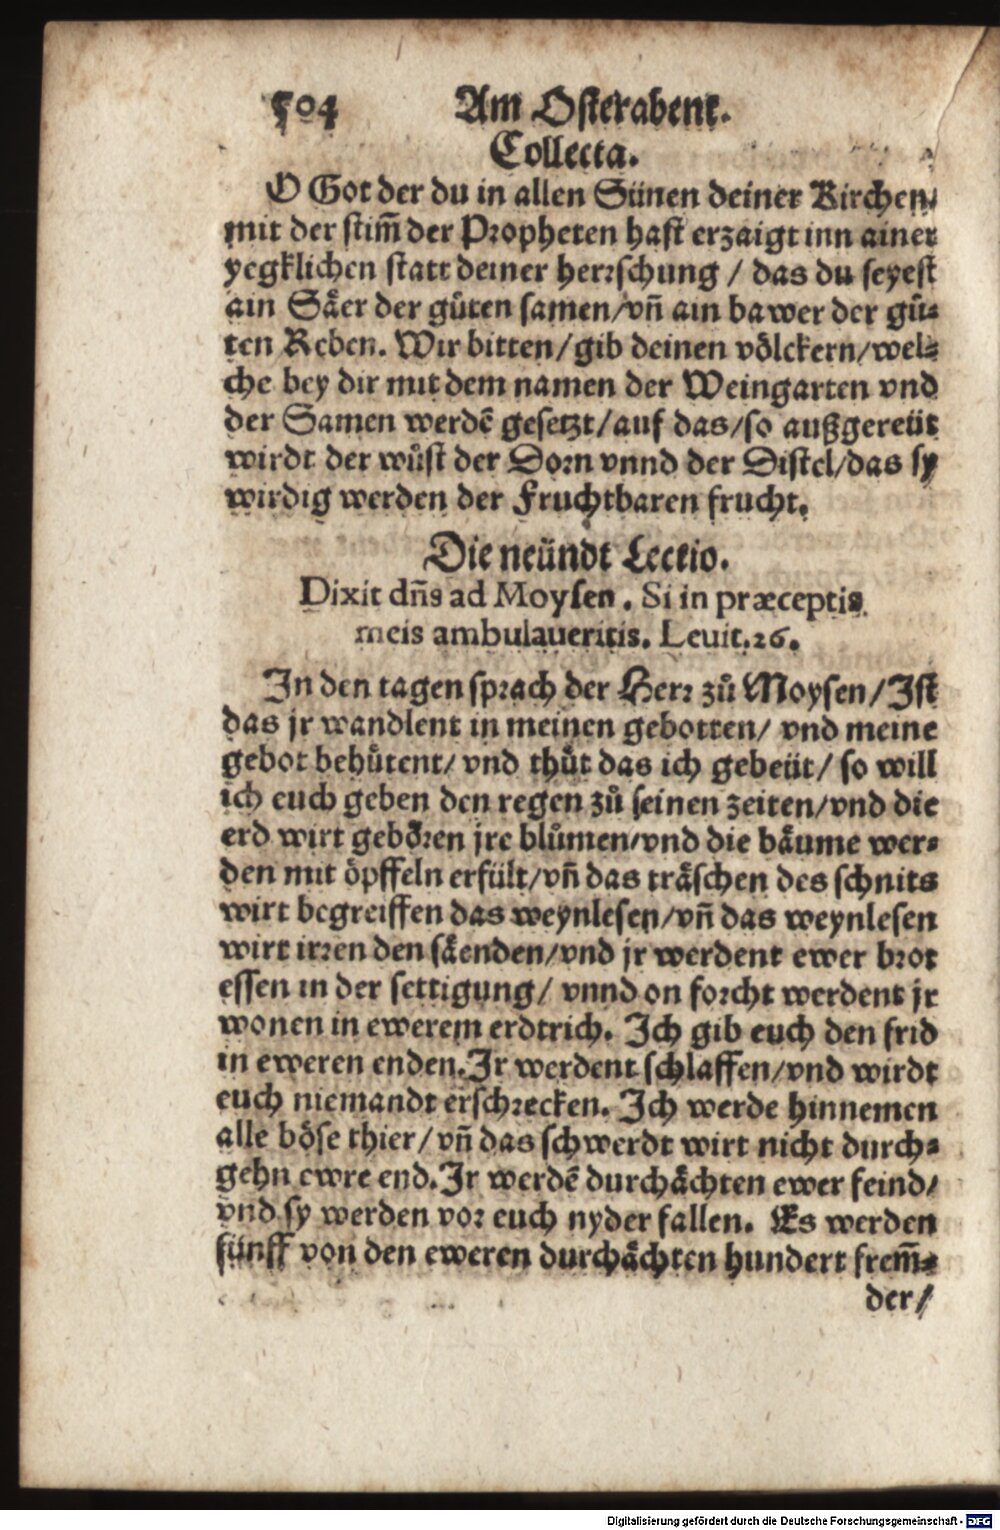 504 Am Osterabent.
Collecta.
O Got der du in allen Sünen deiner Kirchen/
mit der stim̄ der Propheten hast erzaigt inn ainer
yegklichen statt deiner herrschung / das du seyest
ain Säer der gůten samen/vn̄ ain bawer der gů-
ten Reben. Wir bitten/gib deinen völckern/wel-
che bey dir mit dem namen der Weingarten vnd
der Samen werdē gesetzt/auf das/so außgereüt
wirdt der wůst der Dorn vnnd der Distel/das sy
wirdig werden der Fruchtbaren frucht.
Die neündt Lectio.
Dixit dn̄s ad Moysen. Si in præceptis
meis ambulaueritis. Leuit.26.
In den tagen sprach der Herr zů Moysen/Ist
das jr wandlent in meinen gebotten/ vnd meine
gebot behůtent/ vnd thůt das ich gebeüt/ so will
ich euch geben den regen zů seinen zeiten/vnd die
erd wirt gebören jre blůmen/vnd die bäume wer-
den mit öpffeln erfült/vn̄ das träschen des schnits
wirt begreiffen das weynlesen/vn̄ das weynlesen
wirt irren den säenden/vnd jr werdent ewer brot
essen in der settigung/ vnnd on forcht werdent jr
wonen in ewerem erdtrich. Ich gib euch den frid
in eweren enden.Ir werdent schlaffen/vnd wirdt
euch niemandt erschrecken. Ich werde hinnemen
alle böse thier/vn̄ das schwerdt wirt nicht durch-
gehn ewre end.Ir werdē durchächten ewer feind/
vnd sy werden vor euch nyder fallen. Es werden
fünff von den eweren durchächten hundert frem̄-
der/
Digitalisierung gefördert durch die Deutsche Forschungsgemeinschaft - DFG